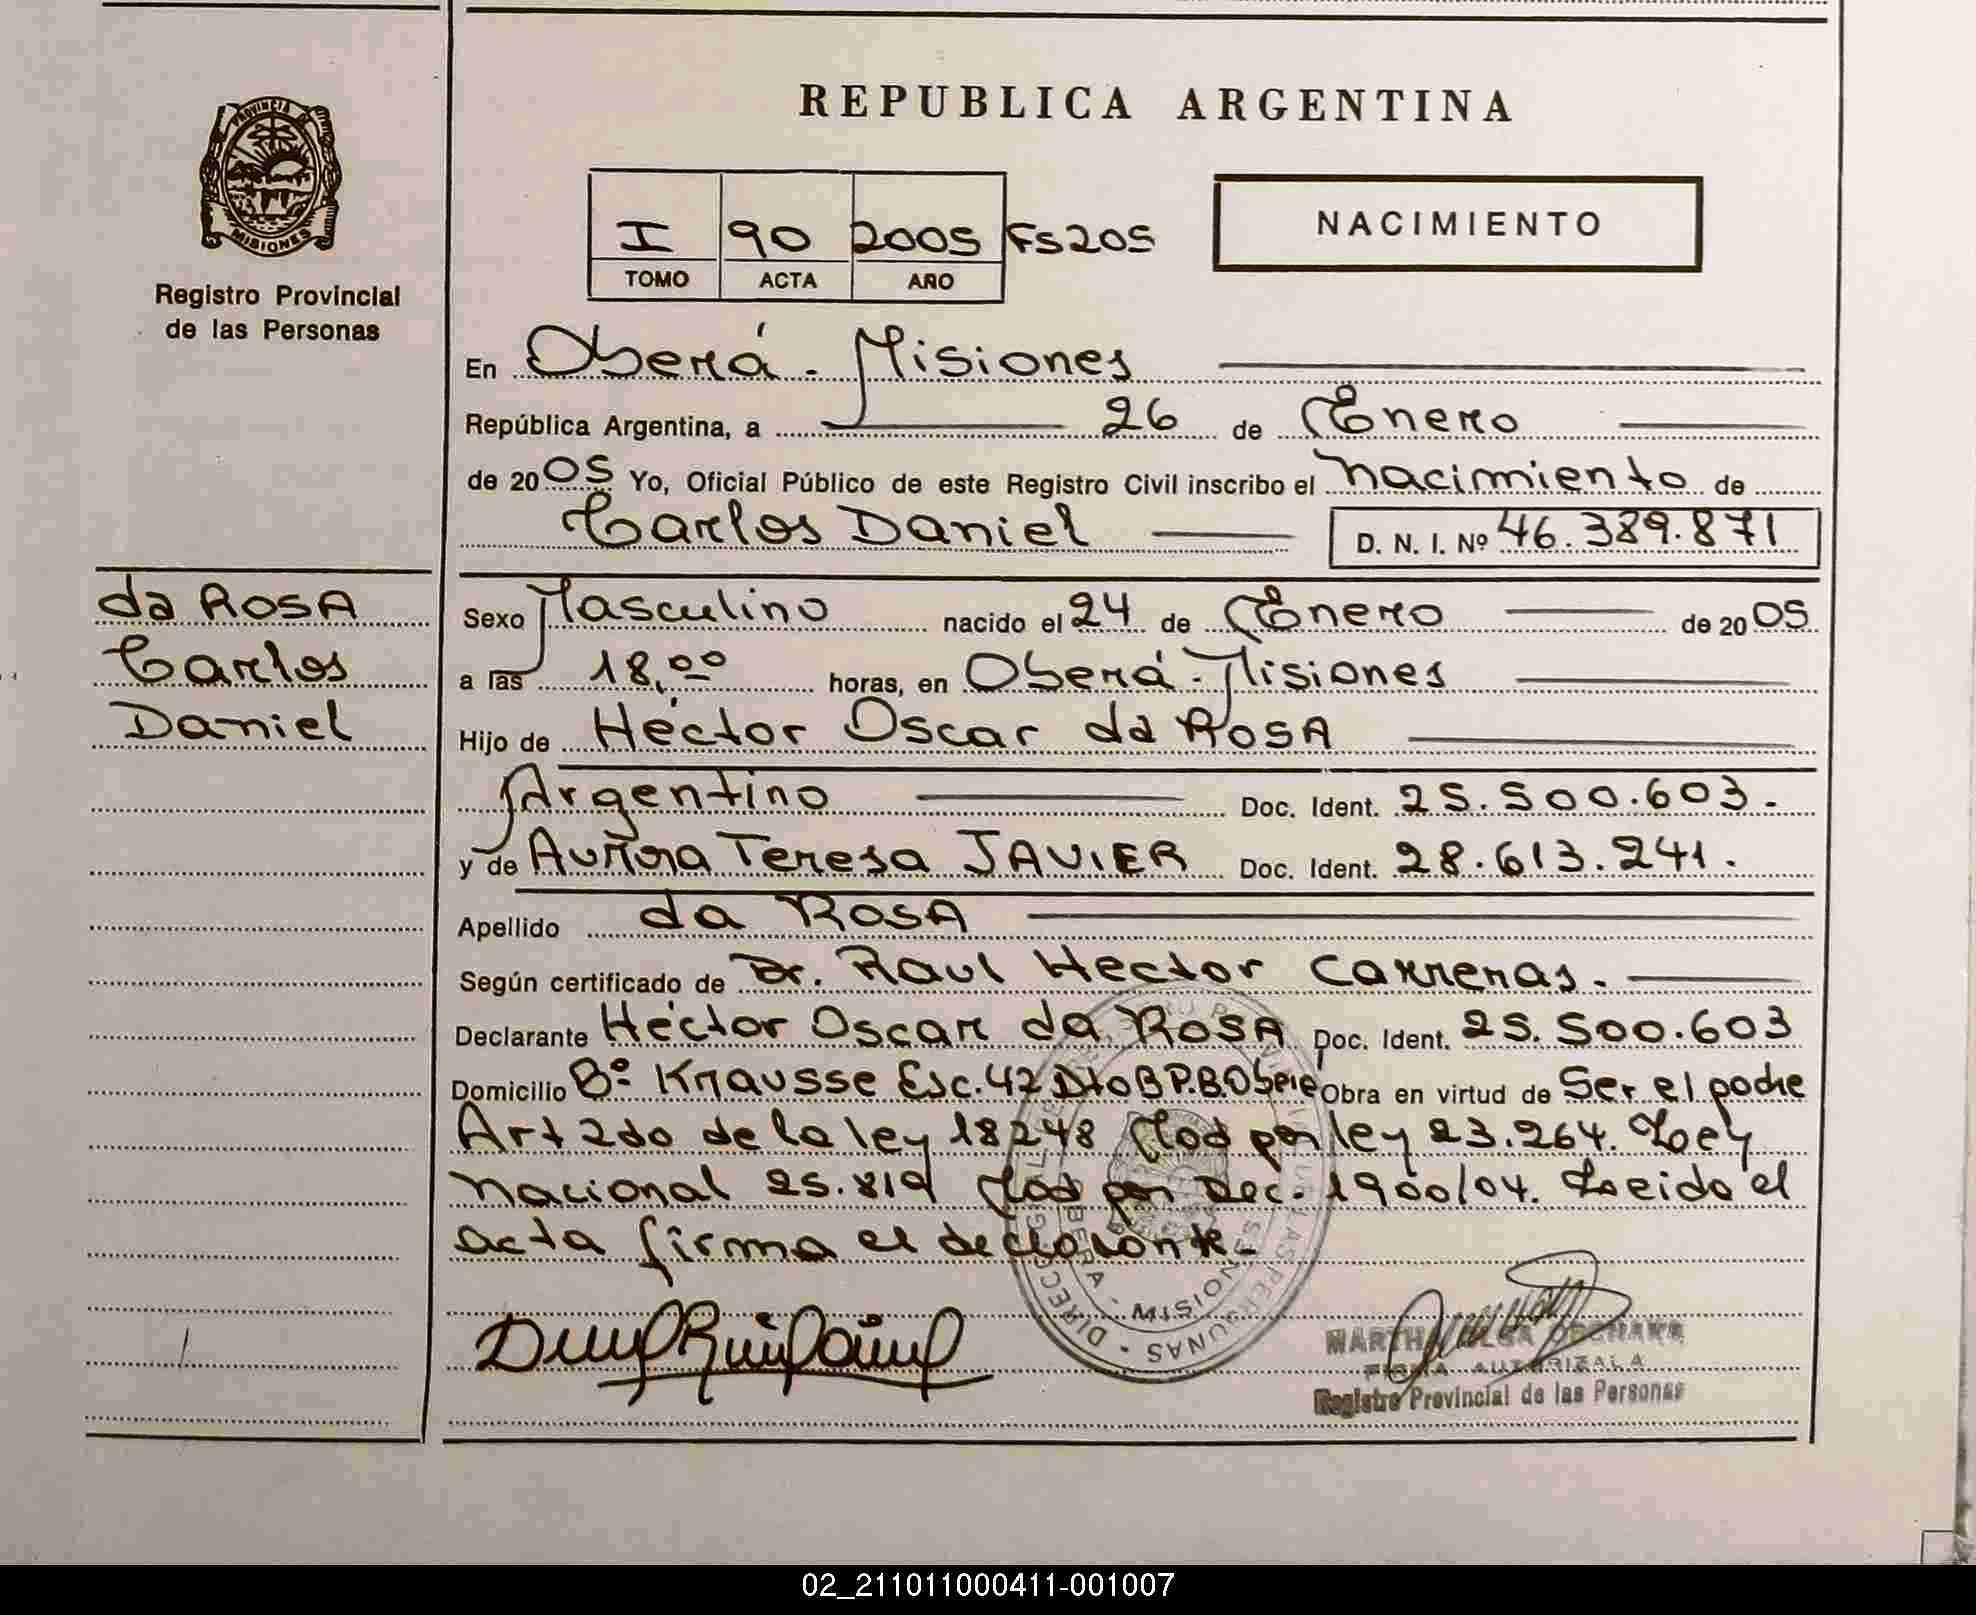 PROVINCIA DE
MISIONES
Registro Provincial
de las Personas
da ROSA
Carlos
Daniel
REPUBLICA ARGENTINA
I 90 2005 Fs205
TOMO ACTA AÑO
NACIMIENTO
En Oberá - Misiones
República Argentina, a 26 de Enero
de 2005 Yo, Oficial Público de este Registro Civil inscribo el nacimiento de
Carlos Daniel D. N. I. Nº 46.389.871
Sexo Masculino nacido el 24 de Enero de 2005
a las 18,00 horas, en Oberá - Misiones
Hijo de Héctor Oscar da ROSA
Argentino Doc. Ident. 25.500.603.
y de Aurora Teresa JAVIER Doc. Ident. 28.613.241.
Apellido da ROSA
Según certificado de Dr. Raul Hector Carreras.
Declarante Héctor Oscar da ROSA Doc. Ident. 25.500.603
Domicilio Bº Krausse Esc. 42 Dto B P.B. Obra en virtud de Ser el padre
Art 2do de la ley 18248 Mod por ley 23.264. Ley
Nacional 25.819 Mod por Dec. 1900/04. Leida el
acta firma el declarante-
MISIONES
FIRMA AUTORIZADA
Registro Provincial de las Personas
02_211011000411-001007